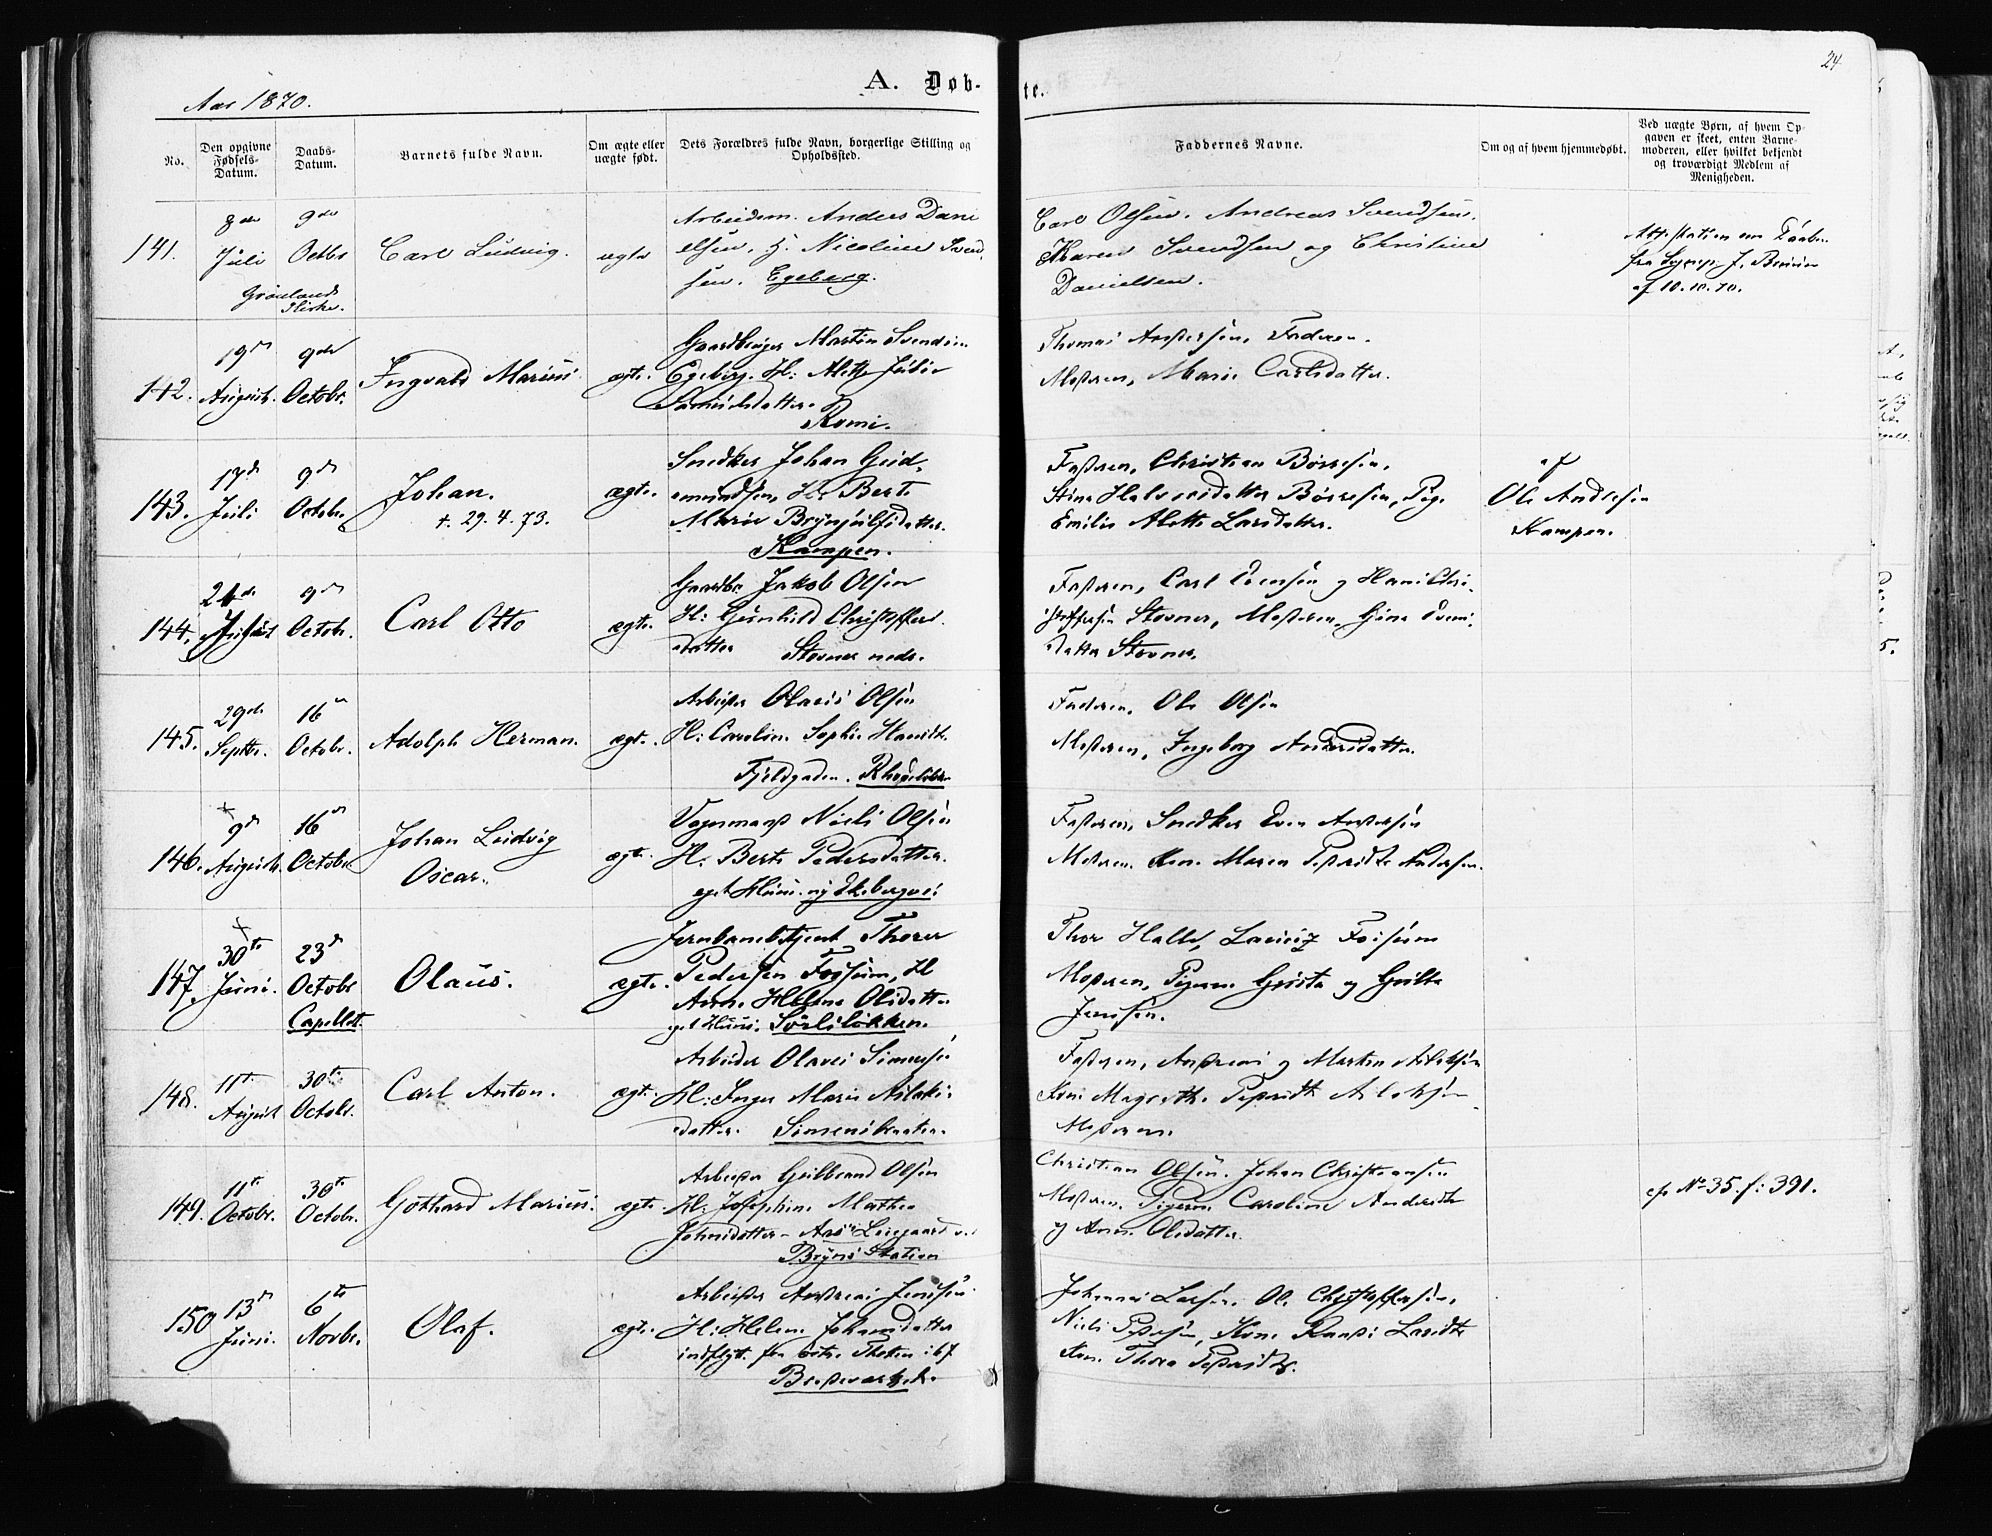 24.
A. Døb-
te.
Aar 1870.
No.
Den opgivne
Fødsels-
Datum.
Daabs-
Datum.
Barnets fulde Navn.
Om ægte eller
uægte født.
Dets Forældres fulde Navn, borgerlige Stilling og
Opholdssted.
Faddernes Navne.
Om og af hvem hjemmedøbt.
Ved uægte Børn, af hvem Op-
gaven er skeet, enten Barne-
moderen, eller hvilket bekjendt
og troværdigt Medlem af
Menigheden.
141.
8de
Juli
Grønlands
Kirke.
9de
Octbr
Carl Ludvig.
ægte
Arbeidsm. Anders Dani
elsen, H. Nicoline Svend
sen. Egeberg.
Carl Olsen. Andreas Svendsen.
Maren Svendsen og Christine
Danielsen.
Attestation om Daaben
fra
af 10.10.70.
142.
19de
August.
9de
Octobr.
Ingvald Marius.
ægte.
Gaardbruger Martin Svendsen
Egeberg. H: Mette Julie
Samuelsdatter.
Romi.
Thomas Andersen, Faderen.
Moderen, Marie Carlsdatter.
143.
17de
Juli
9de
Octobr.
Johan.
+. 29.4.73.
ægte.
Snedker Johan Gud-
mundsen, H: Berte
Marie Brynjulfsdatter.
Kampen.
Faderen, Christian Børresen.
Stine Halvorsdatter Børresen, Pige
Emilie Alette Larsdatter.
af
Ole Andresen
Kampen.
144.
21de
August
9de
Octobr.
Carl Otto
ægte.
Gaardbr. Jakob Olsen
H: Gunhild Christoffers-
datter Stovner nedr.
Faderen, Carl Evensen og Hans Chri-
stoffersen Stovner, Moderen, Gina Evens-
datter Stovner.
145.
29de
Septbr.
16de
Octobr.
Adolph Herman.
ægt.
Arbeider Olaus Olsen
H: Caroline Sophie Hansdtr.
Fjeldgaden.
Faderen, Ole Olsen
Moderen, Ingeborg Andersdatter.
146.
9de
August.
16de
Octobr.
Johan Ludvig
Oscar.
ægt.
Vognmand Niels Olsen
H: Berte Pedersdatter.
eget Huus. ny Ekebergvei
Faderen, Snedker Even Andersen
Moderen. Kone Maren Pedersdtr Andersen.
147.
30te
Juni.
23de
Octobr
Capellet.
Olaus.
ægte.
Jernbanebetjent Thorer
Pedersen Fossum, H
Anne Helene Olsdatter
eget Huus. Sörlilökken.
Thor Halle, Fossum
Moderen, Pigerne og
Jensen.
148.
11te
August
30te
Octobr.
Carl Anton.
ægt.
Arbeider Olaus Simensen
H: Inger Marie Aslaks-
datter. Simensbraaten.
Faderen, Andreas og Martin Aslaksen
Kone Magrethe Pedersdtr Aslaksen
Moderen.
149.
11te
Octobr.
30te
Octobr.
Gothard Marius.
ægte.
Arbeider Gulbrand Olsen
H: Josephine Mathea
Johnsdatter -
Bryns Station
Christian Olsen. Johan Christiansen
Moderen. Pigerne Caroline Andersdtr
og Anne Olsdatter.
cfr No 35. f: 391.
150
13de
Juni.
6te
Novbr.
Olaf.
ægte.
Arbeider Andreas Jensen
H: Helene Johansdatter
indflyt. fra østre Thoten i 67
Johannes Larsen. Ole Christoffersen,
Niels Pedersen, Kone Randi Larsdtr
Kone Thora Pedersdtr.